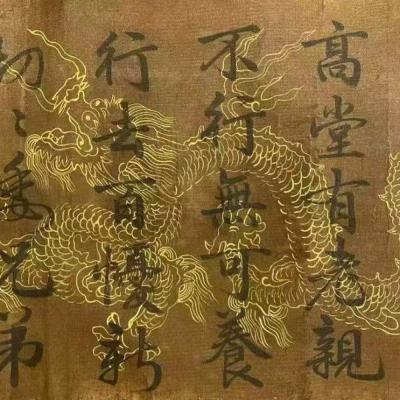 高堂有老親
不行無可養
行去百懮新
切〻委兄弟